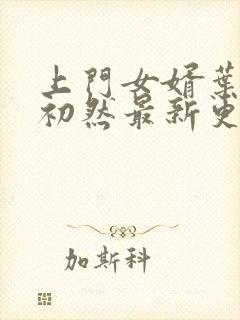 上門女婿葉
初然最新更
加斯科